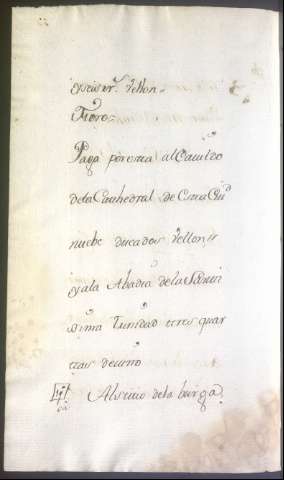 y seis mrs. Vellon.
Fuero:
Paga por ezta al Cavildo
de la Cathedral de Ezta Ciud
nuebe ducados Vellon,
y a la Abadia de la Santi
sima Trinidad tres quar
tas de vino
Al sitio de la burga